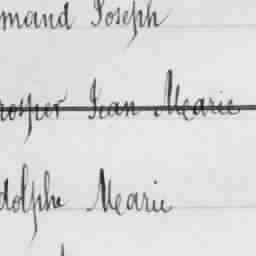 mand Joseph
rosper Jean Marie
dolphe Marie